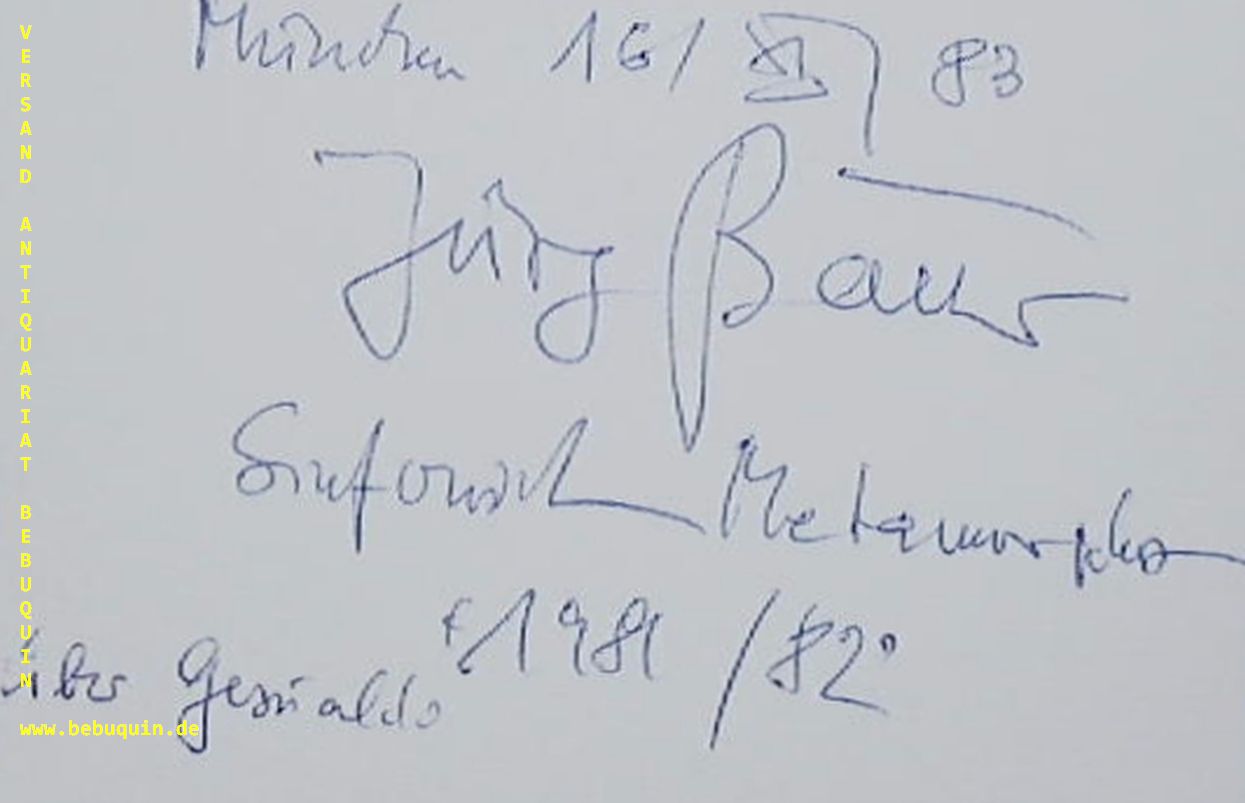 München 16/XI 83
Jürg Baur
Sinfonische Metamorphosen
über Gesualdo 1981/82
VERSAND ANTIQUARIAT BEBUQUIN
www.bebuquin.de